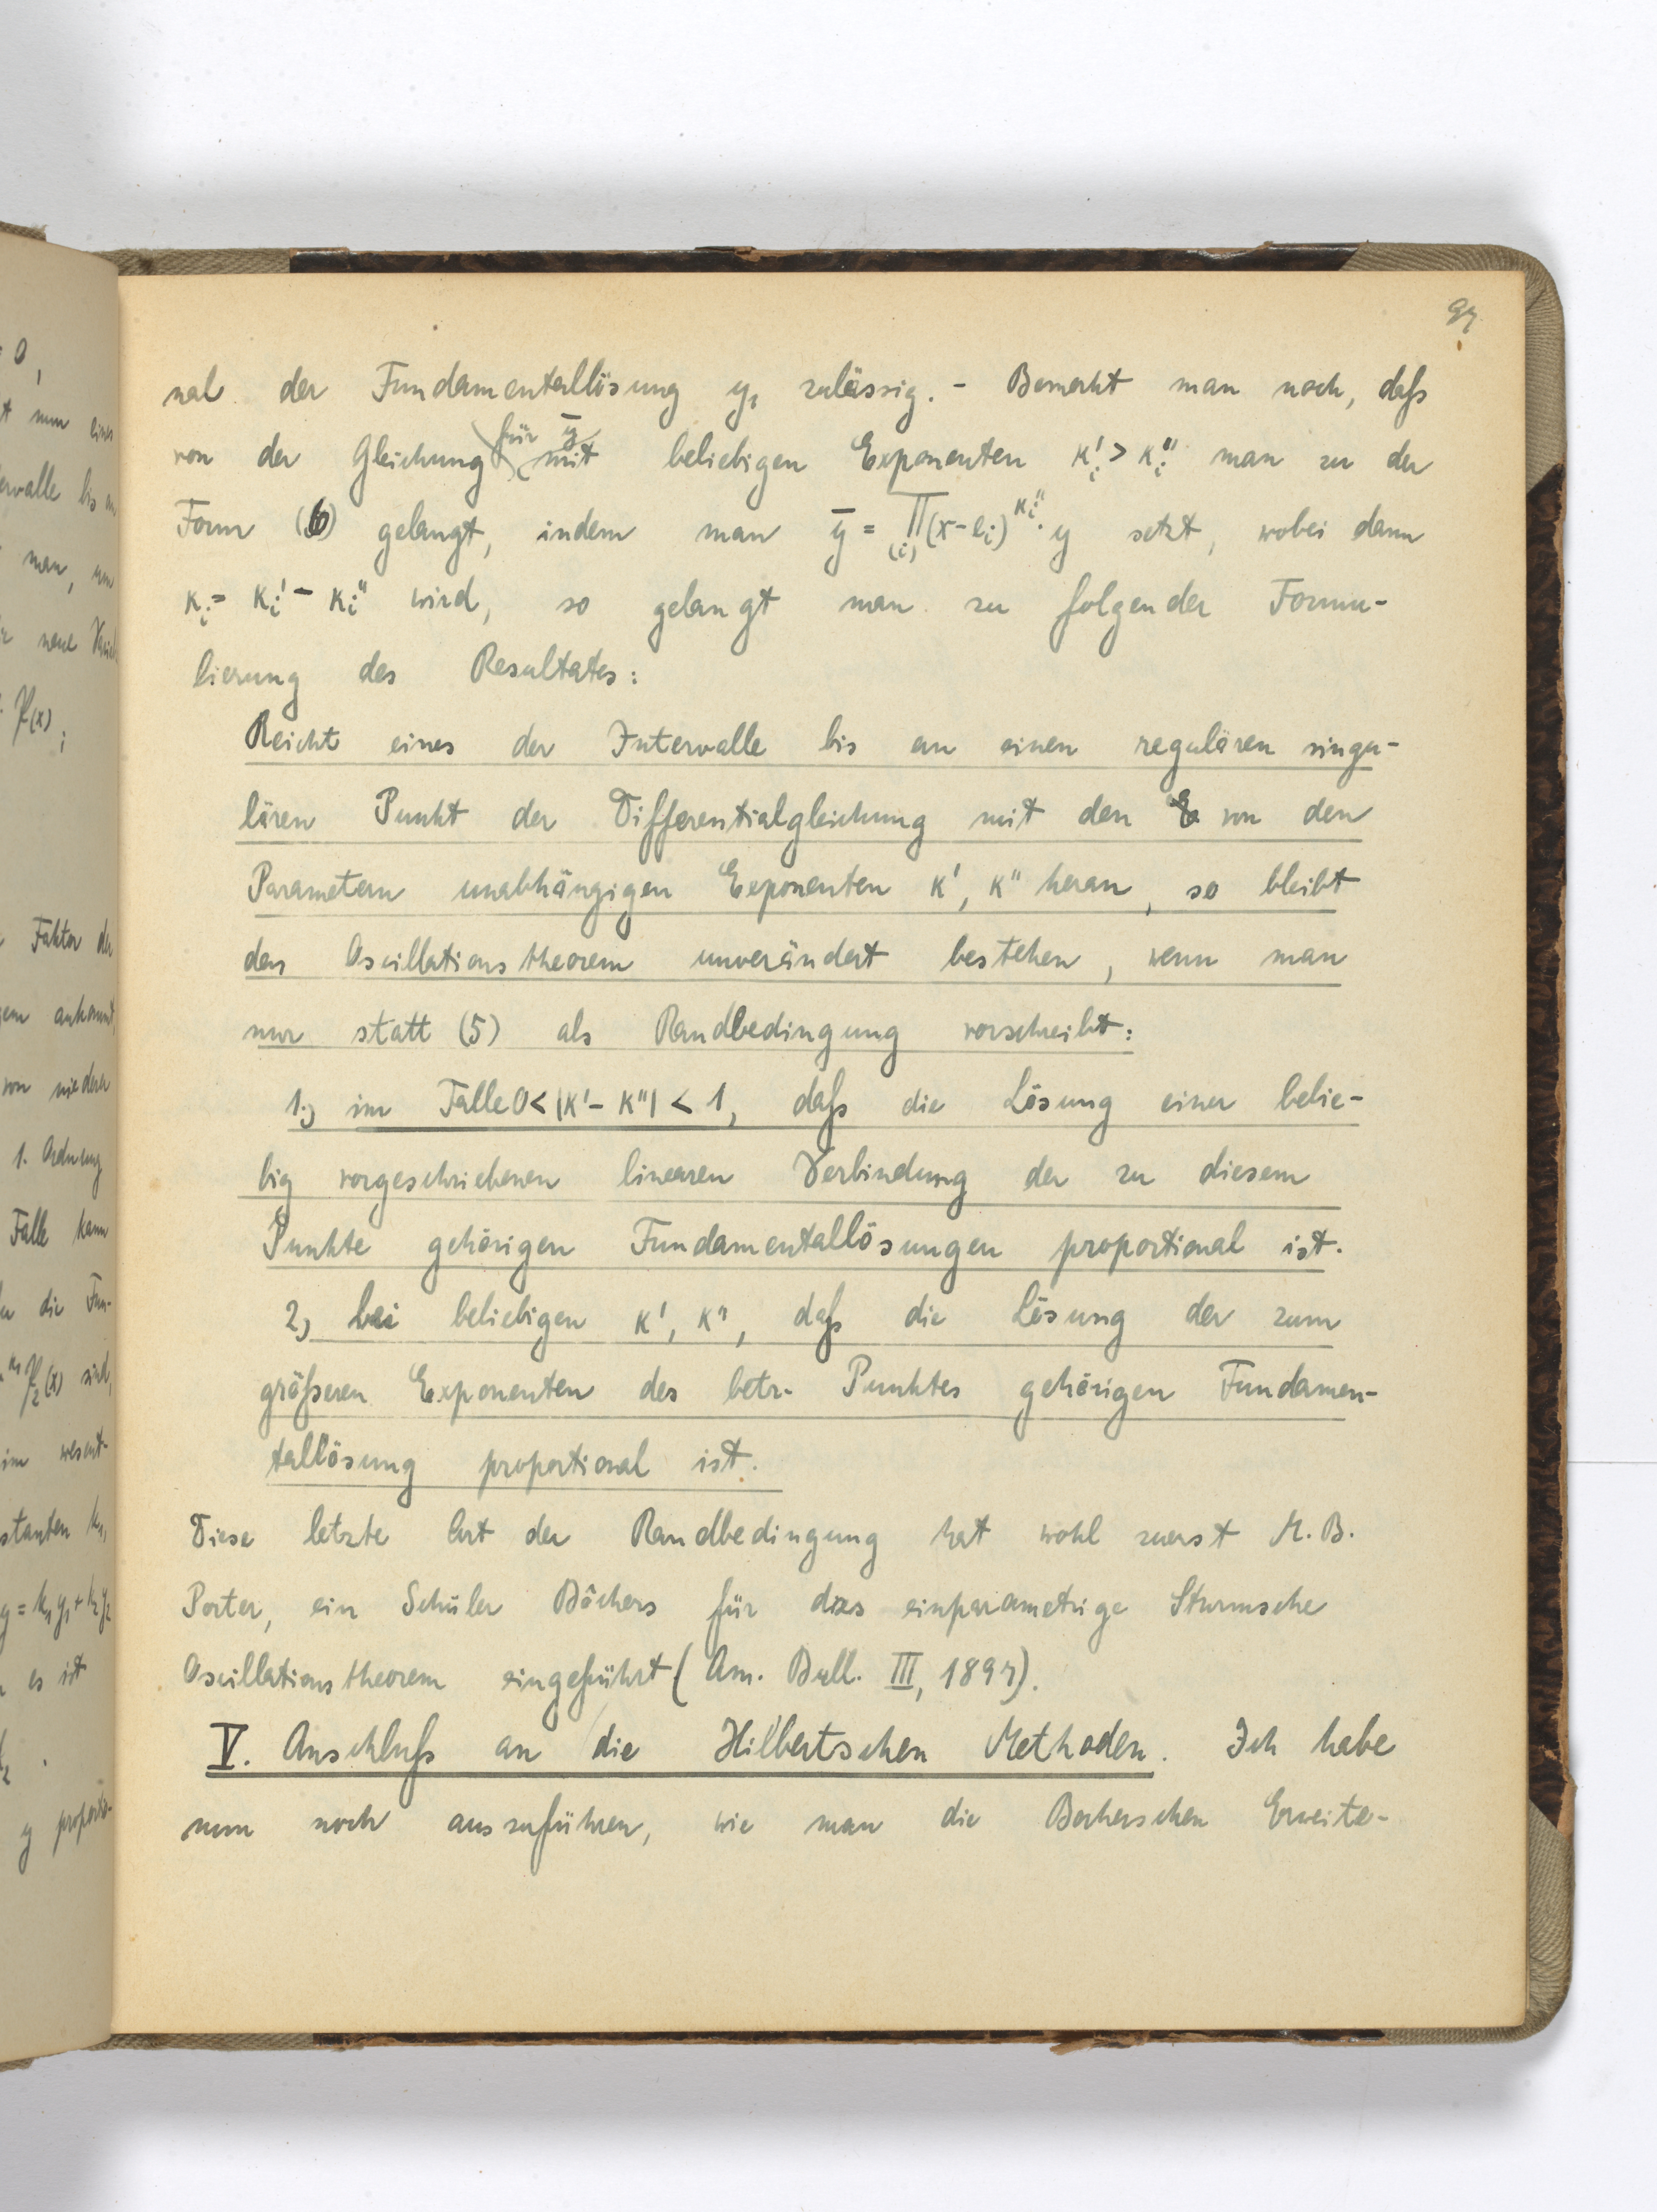 97
nal der Fundamentallösung y₁ zulässig. - Bemerkt man noch, daß
von der Gleichung für ȳ mit beliebigen Exponenten κᵢ' > κᵢ'' man zu der
Form (6) gelangt, indem man ȳ = ∏(i) (x-eᵢ)^κᵢ''· y setzt, wobei dann
κᵢ = κᵢ' - κᵢ'' wird, so gelangt man zu folgender Formu-
lierung des Resultates:
Reicht eines der Intervalle bis an einen regulären singu-
lären Punkt der Differentialgleichung mit den von den
Parametern unabhängigen Exponenten κ', κ'' heran, so bleibt
das Oscillationstheorem unverändert bestehen, wenn man
nur statt (5) als Randbedingung vorschreibt:
1.) im Falle 0 < |κ' - κ''| < 1, daß die Lösung einer belie-
big vorgeschriebenen linearen Verbindung der zu diesem
Punkte gehörigen Fundamentallösungen proportional ist.
2) bei beliebigen κ', κ'', daß die Lösung der zum
größeren Exponenten des betr. Punktes gehörigen Fundamen-
tallösung proportional ist.
Diese letzte Art der Randbedingung hat wohl zuerst M. B.
Porter, ein Schüler Bôchers für das einparametrige Sturmsche
Oscillationstheorem eingeführt (Am. Bull. III, 1897).
V. Anschluß an die Hilbertschen Methoden. Ich habe
nun noch auszuführen, wie man die Bocherschen Erweite-